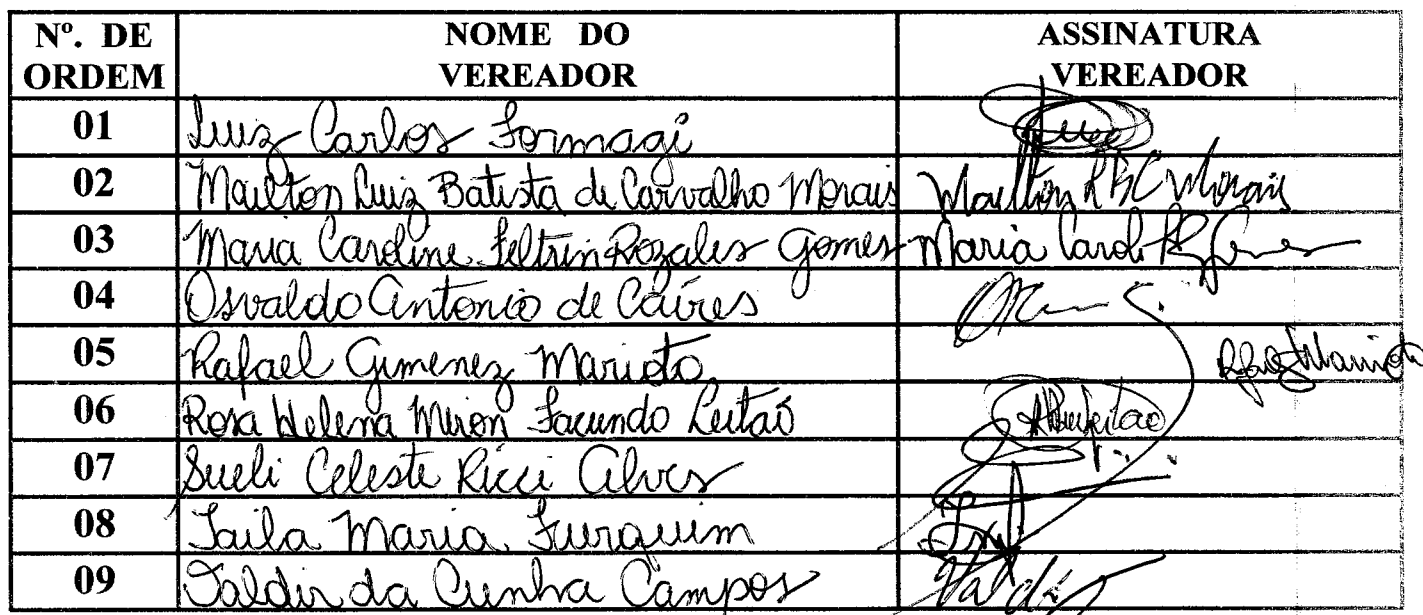 Nº. DE ORDEM NOME DO VEREADOR ASSINATURA VEREADOR
01 Luiz Carlos Formagi
02 Mailton Luiz Batista de Carvalho Morais Mailton L B C Morais
03 Maria Caroline Feltrin Rozales Gomes Maria Carol
04 Osvaldo Antonio de Caires
05 Rafael Gimenez Marioto
06 Rosa Helena Miron Facundo Leitão
07 Sueli Celeste Ricci Alves
08 Taila Maria Furquim
09 Valdir da Cunha Campos